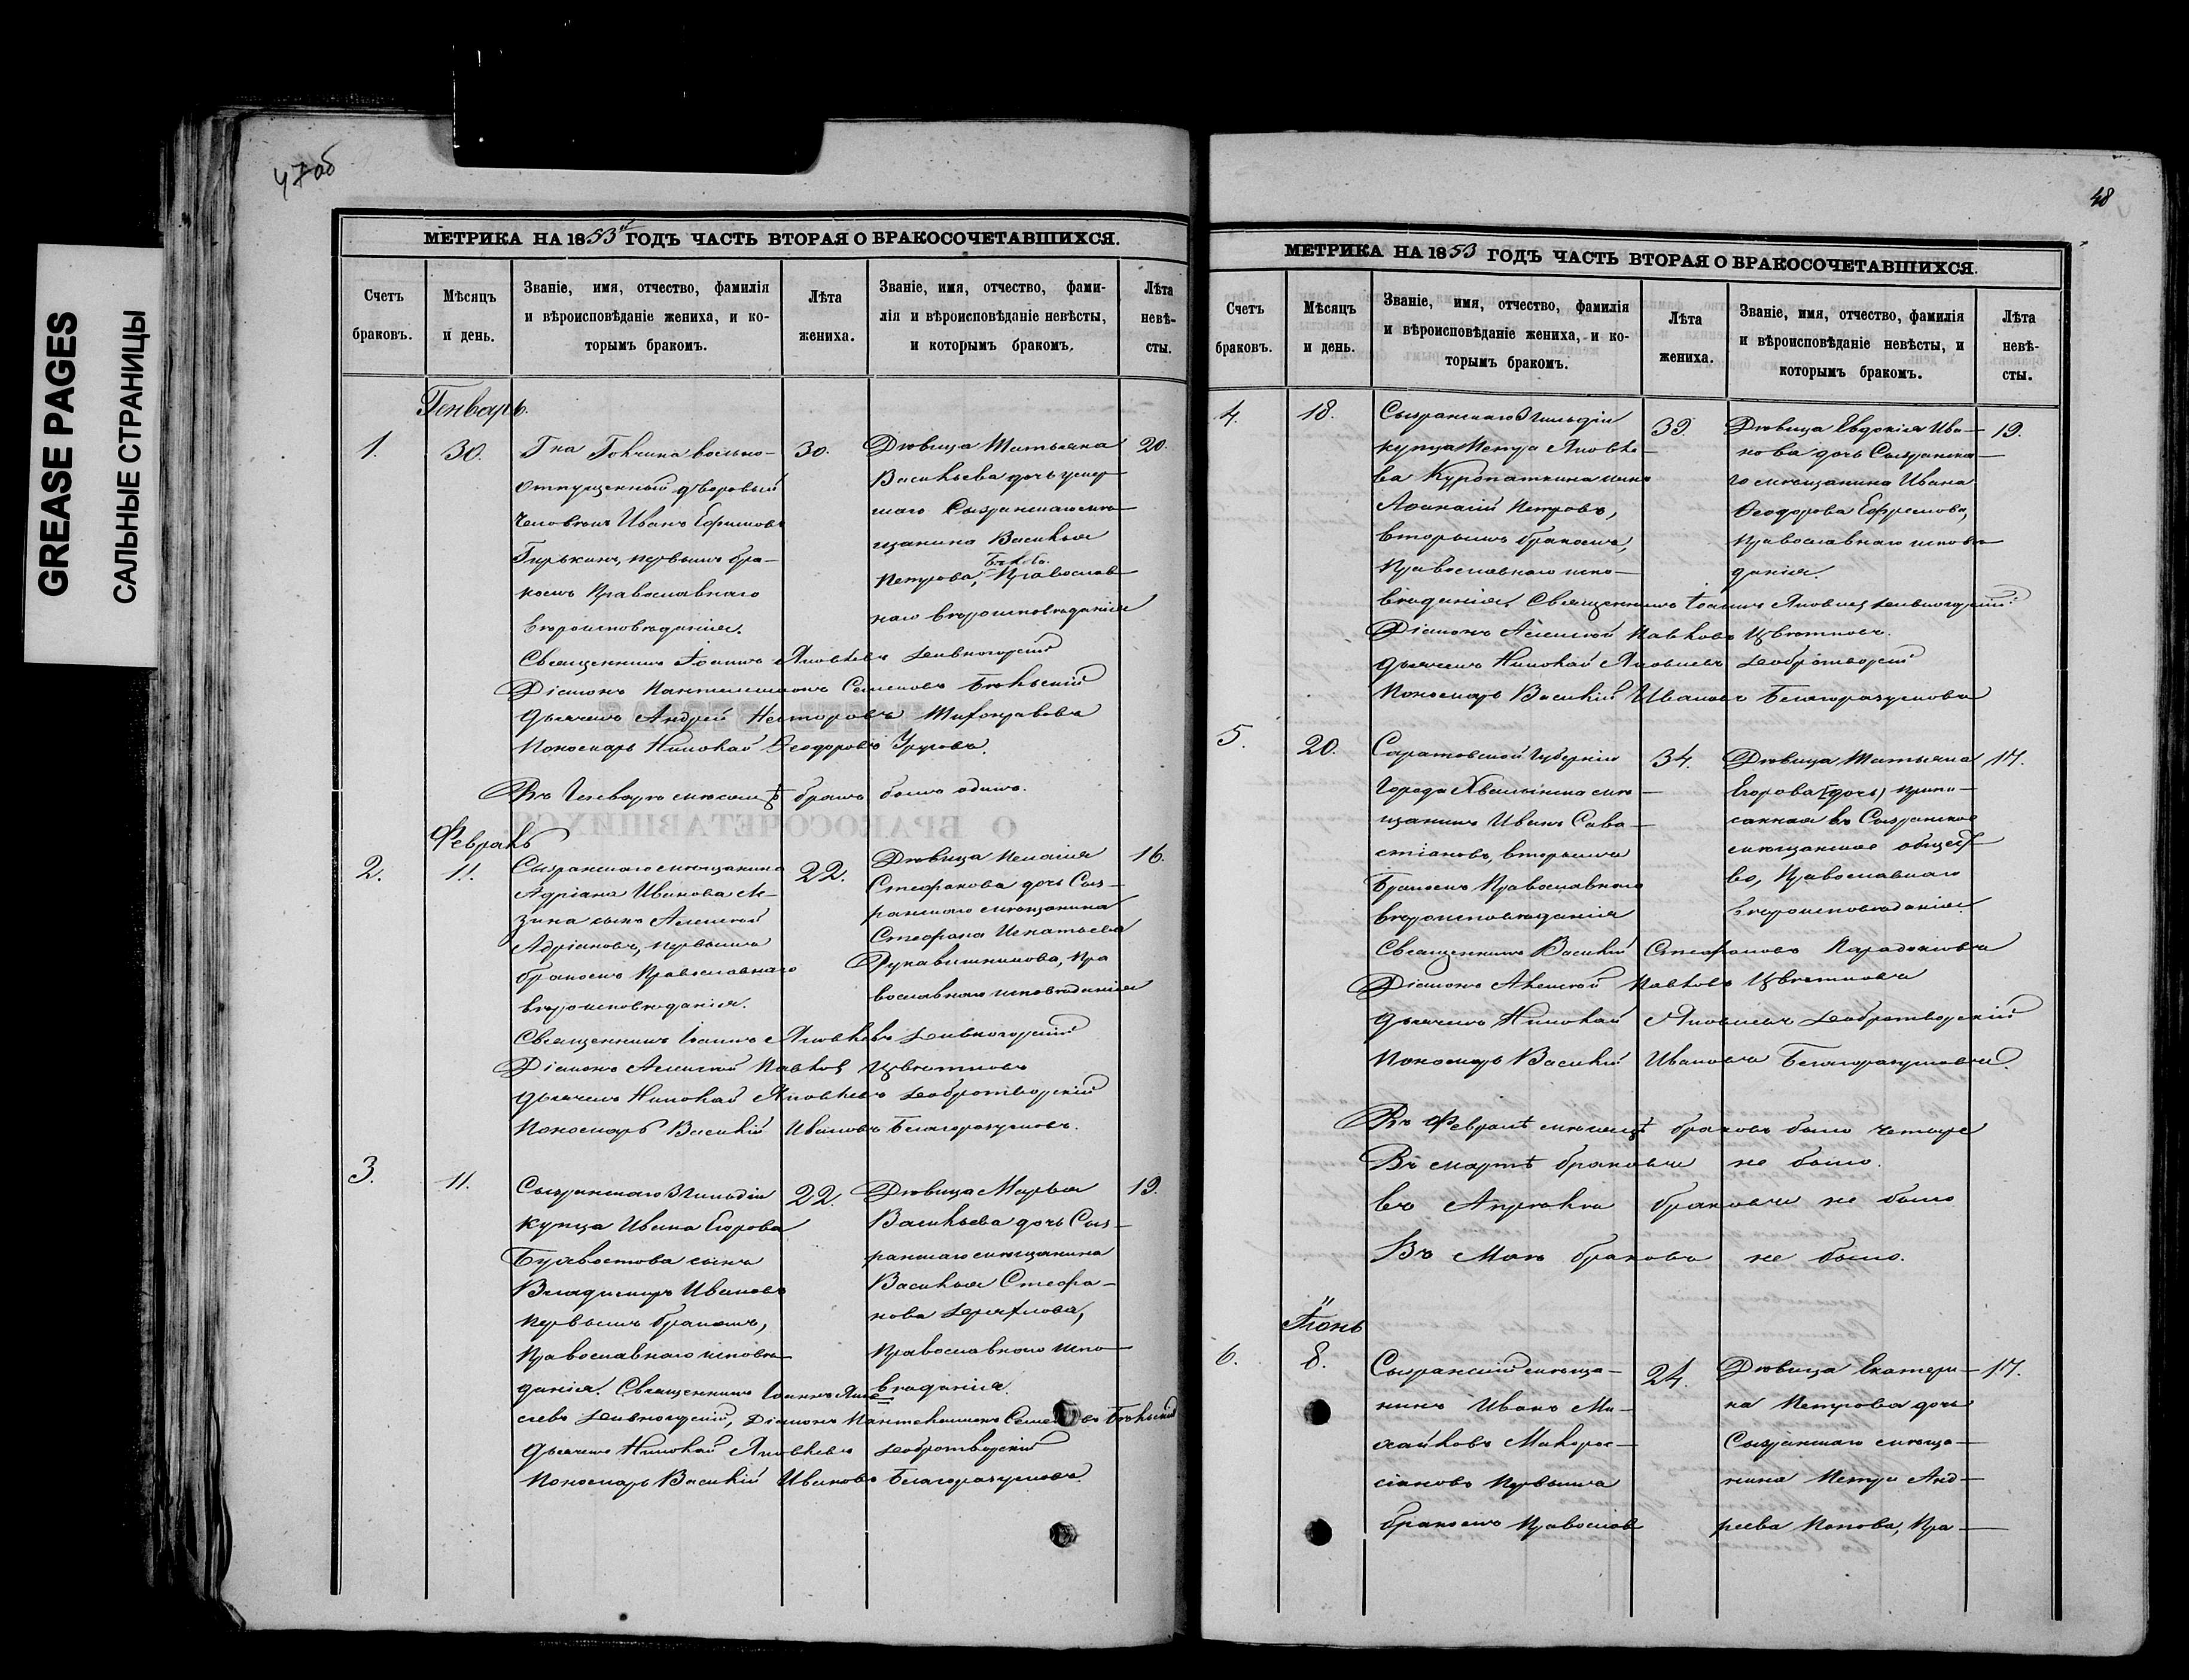 47об
GREASE PAGES
САЛЬНЫЕ СТРАНИЦЫ
МЕТРИКА НА 1853й ГОДЪ ЧАСТЬ ВТОРАЯ О БРАКОСОЧЕТАВШИХСЯ.
Счетъ браковъ.
Мѣсяцъ и день.
Званіе, имя, отчество, фамилія
и вѣроисповѣданіе жениха, и ко-
торымъ бракомъ.
Лѣта жениха.
Званіе, имя, отчество, фами-
лія и вѣроисповѣданіе невѣсты,
и которымъ бракомъ.
Лѣта невѣ-
сты.
Генварь.
1.
30.
Гна вольно-
отпущенный дворовый
человѣкъ Иванъ Ефимовъ
первымъ бра-
комъ Православнаго
вѣроисповѣданія.
30.
Дѣвица Татьяна
Васильева дочь умер
шаго Сызранскаго мѣ
щанина Василья
Петрова, Православ
наго вѣроисповѣданія
20.
Священникъ Іоаннъ Яковлевъ Дивногорскій
Діаконъ Пантелеимонъ Семеновъ Бѣльскій
Дьячекъ Андрей Несторовъ Тихонравовъ
Пономарь Николай Ѳеодоровъ
Въ Генварѣ мѣсяцѣ бракъ былъ одинъ.
Февраль
2.
11.
Сызранскаго мѣщанина
Адріана Иванова
сынъ Алексѣй
Адріановъ, первымъ
бракомъ Православнаго
вѣроисповѣданія.
22.
Дѣвица Пелагія
Стефанова дочь Сыз-
ранскаго мѣщанина
Стефана Игнатьева
Рукавишникова, Пра
вославнаго исповѣданія
16.
Священникъ Іоаннъ Яковлевъ Дивногорскій
Діаконъ Алексѣй Павловъ Цвѣтковъ
Дьячекъ Николай Яковлевъ Добротворскій
Пономарь Василій Ивановъ Благоразумовъ.
3.
11.
Сызранскаго 3 гильдіи
купца Ивана Егорова
сынъ
Владимиръ Ивановъ
первымъ бракомъ,
Православнаго исповѣ
данія. Священникъ Іоаннъ Яков
22.
Дѣвица Марья
Васильева дочь Сыз-
ранскаго мѣщанина
Василья Стефа-
нова
Православнаго испо
вѣданія.
19.
левъ Дивногорскій, Діаконъ Пантелеимонъ Семеновъ Бѣльскій
Дьячекъ Николай Яковлевъ Добротворскій
Пономарь Василій Ивановъ Благоразумовъ.
48
МЕТРИКА НА 1853 ГОДЪ ЧАСТЬ ВТОРАЯ О БРАКОСОЧЕТАВШИХСЯ.
Счетъ браковъ.
Мѣсяцъ и день.
Званіе, имя, отчество, фамилія
и вѣроисповѣданіе жениха, и ко-
торымъ бракомъ.
Лѣта жениха.
Званіе, имя, отчество, фамилія
и вѣроисповѣданіе невѣсты, и
которымъ бракомъ.
Лѣта невѣ-
сты.
4.
18.
Сызранскаго 3 гильдіи
купца Петра Яковле-
ва Куропаткина сынъ
Аѳанасій Петровъ,
вторымъ бракомъ,
Православнаго испо-
вѣданія.
39.
Дѣвица Евдокія Ива-
нова дочь Сызранска-
го мѣщанина Ивана
Ѳеодорова Ефремова,
Православнаго исповѣ
данія.
19.
Священникъ Іоаннъ Яковлевъ Дивногорскій.
Діаконъ Алексѣй Павловъ Цвѣтковъ.
Дьячекъ Николай Яковлевъ Добротворскій
Пономарь Василій Ивановъ Благоразумовъ
5.
20.
Саратовской Губерніи
Города Хвалынска мѣ-
щанинъ Иванъ Сава-
стіановъ, вторымъ
бракомъ Православнаго
вѣроисповѣданія
34.
Дѣвица Татьяна
Егорова (дочь) припи-
санная въ Сызранское
мѣщанское общест-
во, Православнаго
вѣроисповѣданія.
17.
Священникъ Василій Стефановъ Парадоксовъ
Діаконъ Алексѣй Павловъ Цвѣтковъ
Дьячекъ Николай Яковлевъ Добротворскій
Пономарь Василій Ивановъ Благоразумовъ.
Въ Февралѣ мѣсяцѣ браковъ было четыре
Въ мартѣ браковъ не было.
въ Апрѣлѣ браковъ не было
Въ Маѣ браковъ не было.
Іюнь
6.
8.
Сызранскій мѣща-
нинъ Иванъ Ми-
хайловъ
первымъ
бракомъ Православ
24.
Дѣвица Екатери-
на Петрова дочь
Сызранскаго мѣща-
нина Петра Анд-
реева Попова, Пра-
17.